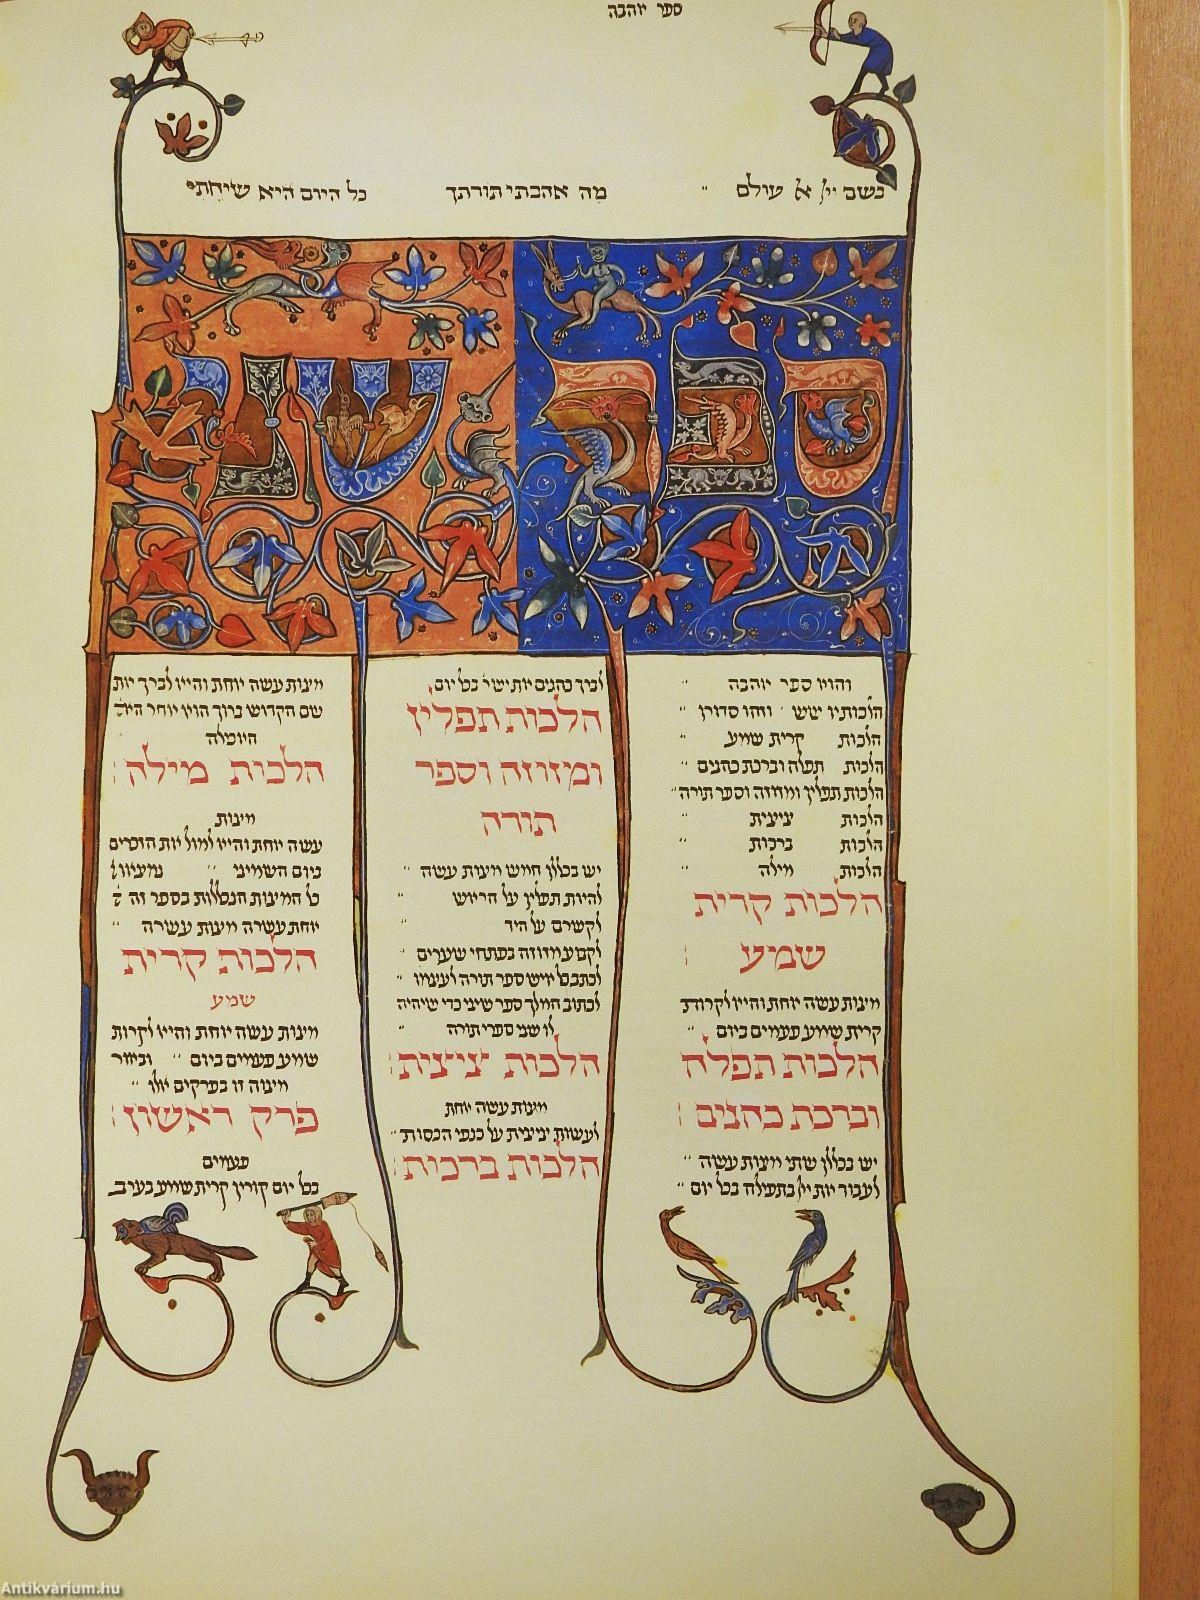 ספר אהבה
בשם ייי אל עולם
מה אהבתי תורתך
כל היום היא שיחתי
והוא ספר אהבה
הלכותיו שש וזהו סדורן
הלכות קרית שמע
הלכות תפלה וברכת כהנים
הלכות תפלין ומזוזה וספר תורה
הלכות ציצית
הלכות ברכות
הלכות מילה
הלכות קרית
שמע
מצות עשה אחת והיא לקרות
קרית שמע פעמים ביום
הלכות תפלה
וברכת כהנים
יש בכללן שתי מצות עשה
לעבוד את ייי בתפילה בכל יום
לברך כהנים את ישר' בכל יום
הלכות תפלין
ומזוזה וספר
תורה
יש בכללן חמש מצות עשה
להיות תפלין על הראש
לקשרם על היד
לקבוע מזוזה בפתחי שערים
לכתב כל איש ספר תורה לעצמו
לכתוב המלך ספר שיני כדי שיהיה
לו שני ספרי תורה
הלכות ציצית
מצות עשה אחת
לעשות ציצית על כנפי הכסות
הלכות ברכות
מצות עשה אחת והיא לברך את
שם הקדוש ברוך הוא אחר
אכילה
הלכות מילה
מצות
עשה אחת והיא למול את הזכרים
ביום השמיני נמצאו
כל המצות הנכללות בספר זה
אחת עשרה מצות עשרה
הלכות קרית
שמע
מצות עשה אחת והיא לקרות
שמע פעמים ביום וביאור
מצוה זו בפרקים אלו
פרק ראשון
פעמים
בכל יום קורין קרית שמע בערב
Antikvárium.hu